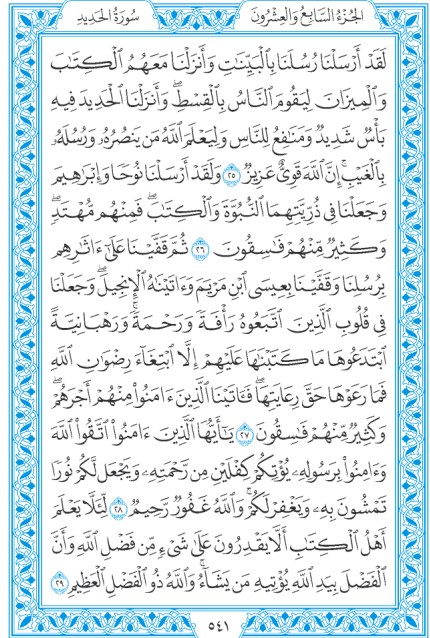 الجُزْءُ السَّابِعُ وَالعِشْرُونَ
سُورَةُ الحَدِيدِ
لَقَدْ أَرْسَلْنَا رُسُلَنَا بِالْبَيِّنَٰتِ وَأَنزَلْنَا مَعَهُمُ الْكِتَٰبَ
وَالْمِيزَانَ لِيَقُومَ النَّاسُ بِالْقِسْطِ ۖ وَأَنزَلْنَا الْحَدِيدَ فِيهِ
بَأْسٌ شَدِيدٌ وَمَنَٰفِعُ لِلنَّاسِ وَلِيَعْلَمَ اللَّهُ مَن يَنصُرُهُۥ وَرُسُلَهُۥ
بِالْغَيْبِ ۚ إِنَّ اللَّهَ قَوِيٌّ عَزِيزٌ ٢٥ وَلَقَدْ أَرْسَلْنَا نُوحًا وَإِبْرَٰهِيمَ
وَجَعَلْنَا فِي ذُرِّيَّتِهِمَا النُّبُوَّةَ وَالْكِتَٰبَ ۖ فَمِنْهُم مُّهْتَدٍ ۖ
وَكَثِيرٌ مِّنْهُمْ فَٰسِقُونَ ٢٦ ثُمَّ قَفَّيْنَا عَلَىٰٓ ءَاثَٰرِهِم
بِرُسُلِنَا وَقَفَّيْنَا بِعِيسَى ابْنِ مَرْيَمَ وَءَاتَيْنَٰهُ الْإِنجِيلَ ۖ وَجَعَلْنَا
فِي قُلُوبِ الَّذِينَ اتَّبَعُوهُ رَأْفَةً وَرَحْمَةً ۚ وَرَهْبَانِيَّةً
ابْتَدَعُوهَا مَا كَتَبْنَٰهَا عَلَيْهِمْ إِلَّا ابْتِغَآءَ رِضْوَٰنِ اللَّهِ
فَمَا رَعَوْهَا حَقَّ رِعَايَتِهَا ۖ فَـَٔاتَيْنَا الَّذِينَ ءَامَنُوا۟ مِنْهُمْ أَجْرَهُمْ ۖ
وَكَثِيرٌ مِّنْهُمْ فَٰسِقُونَ ٢٧ يَٰٓأَيُّهَا الَّذِينَ ءَامَنُوا۟ اتَّقُوا۟ اللَّهَ
وَءَامِنُوا۟ بِرَسُولِهِۦ يُؤْتِكُمْ كِفْلَيْنِ مِن رَّحْمَتِهِۦ وَيَجْعَل لَّكُمْ نُورًا
تَمْشُونَ بِهِۦ وَيَغْفِرْ لَكُمْ ۚ وَاللَّهُ غَفُورٌ رَّحِيمٌ ٢٨ لِّئَلَّا يَعْلَمَ
أَهْلُ الْكِتَٰبِ أَلَّا يَقْدِرُونَ عَلَىٰ شَيْءٍ مِّن فَضْلِ اللَّهِ ۙ وَأَنَّ
الْفَضْلَ بِيَدِ اللَّهِ يُؤْتِيهِ مَن يَشَآءُ ۚ وَاللَّهُ ذُو الْفَضْلِ الْعَظِيمِ ٢٩
٥٤١